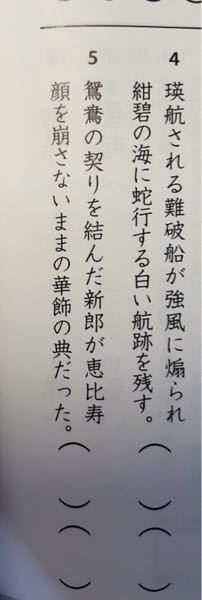 4 瑛航される難破船が強風に煽られ
紺碧の海に蛇行する白い航跡を残す。( )( )
5 鴛鴦の契りを結んだ新郎が恵比寿
顔を崩さないままの華飾の典だった。( )( )